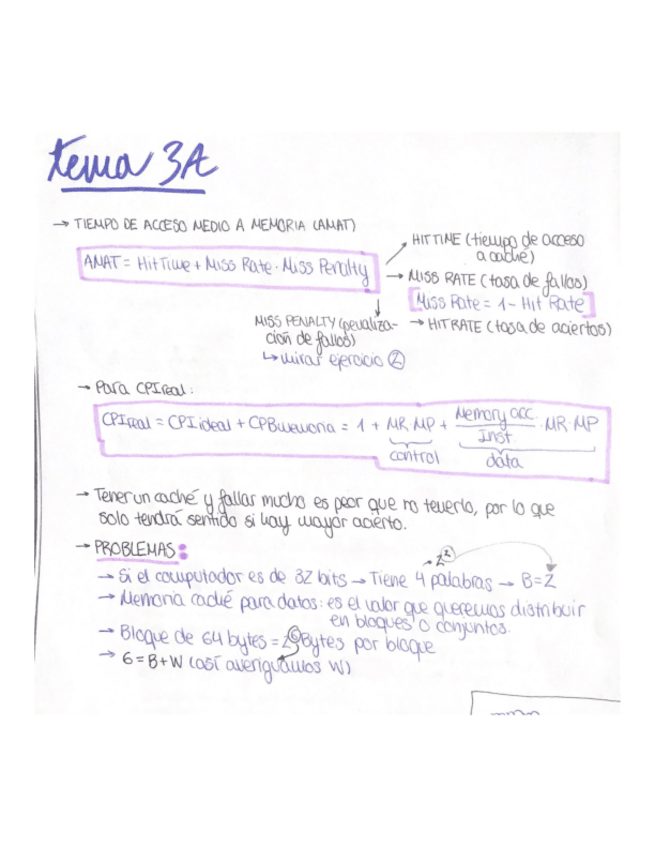 tema 3A
→ TIEMPO DE ACCESO MEDIO A MEMORIA (AMAT)
AMAT = Hit Time + Miss Rate · Miss Penalty
HIT TIME (tiempo de acceso
a caché)
→ MISS RATE (tasa de fallos)
Miss Rate = 1 - Hit Rate
→ HIT RATE (tasa de aciertos)
MISS PENALTY (penaliza-
ción de fallos)
↳ mirar ejercicio ②
→ Para CPIreal:
CPIreal = CPI ideal + CPBmemoria = 1 + MR.MP + Memory acc. / Inst. · MR·MP
control
data
→ Tener un caché y fallar mucho es peor que no tenerlo, por lo que
solo tendrá sentido si hay mayor acierto.
→ PROBLEMAS:
→ Si el computador es de 32 bits → Tiene 4 palabras → B=2
2²
→ Memoria caché para datos: es el valor que queremos distribuir
en bloques o conjuntos.
→ Bloque de 64 bytes = 2⁶ Bytes por bloque
→ 6 = B+W (así averiguamos W)